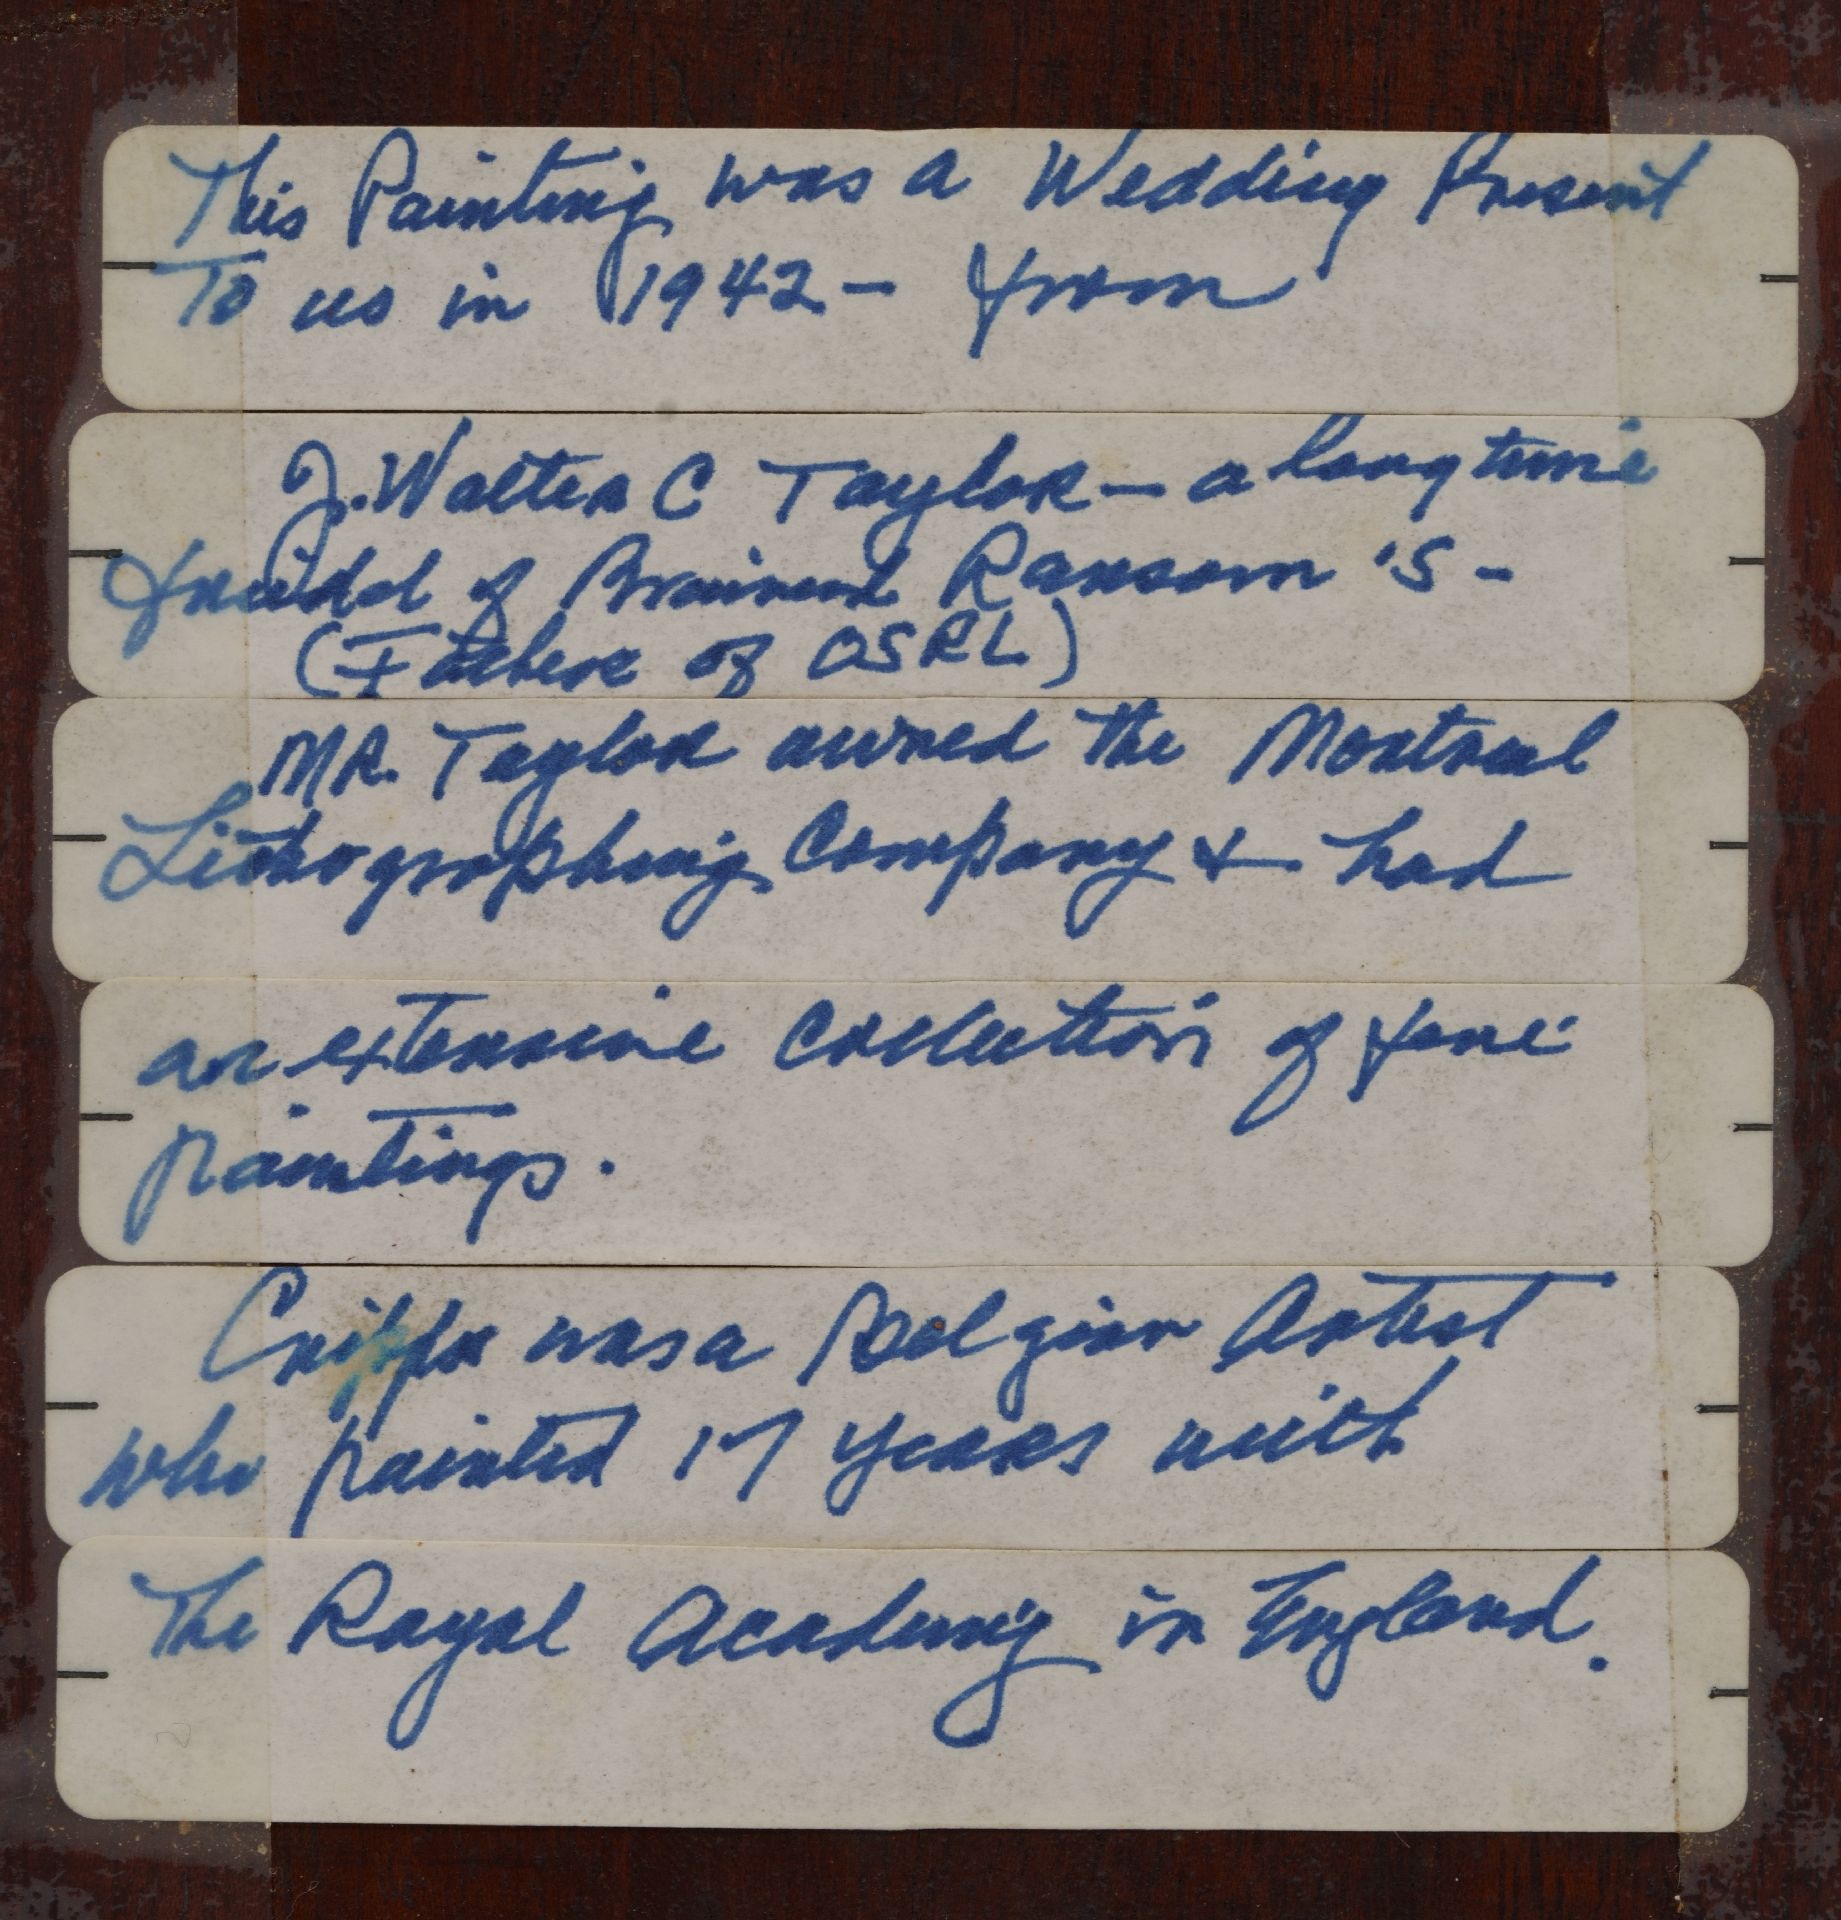 This Painting was a Wedding Present
To us in 1942 - from
J. Walter C Taylor - a long time
friend of Brainerd Ransom 's -
(Father of OSRL)
MR. Taylor owned the Montreal
Lithographing Company & had
an extensive collection of fine
paintings.
was a Belgian Artist
who painted 17 years with
The Royal Academy in England.